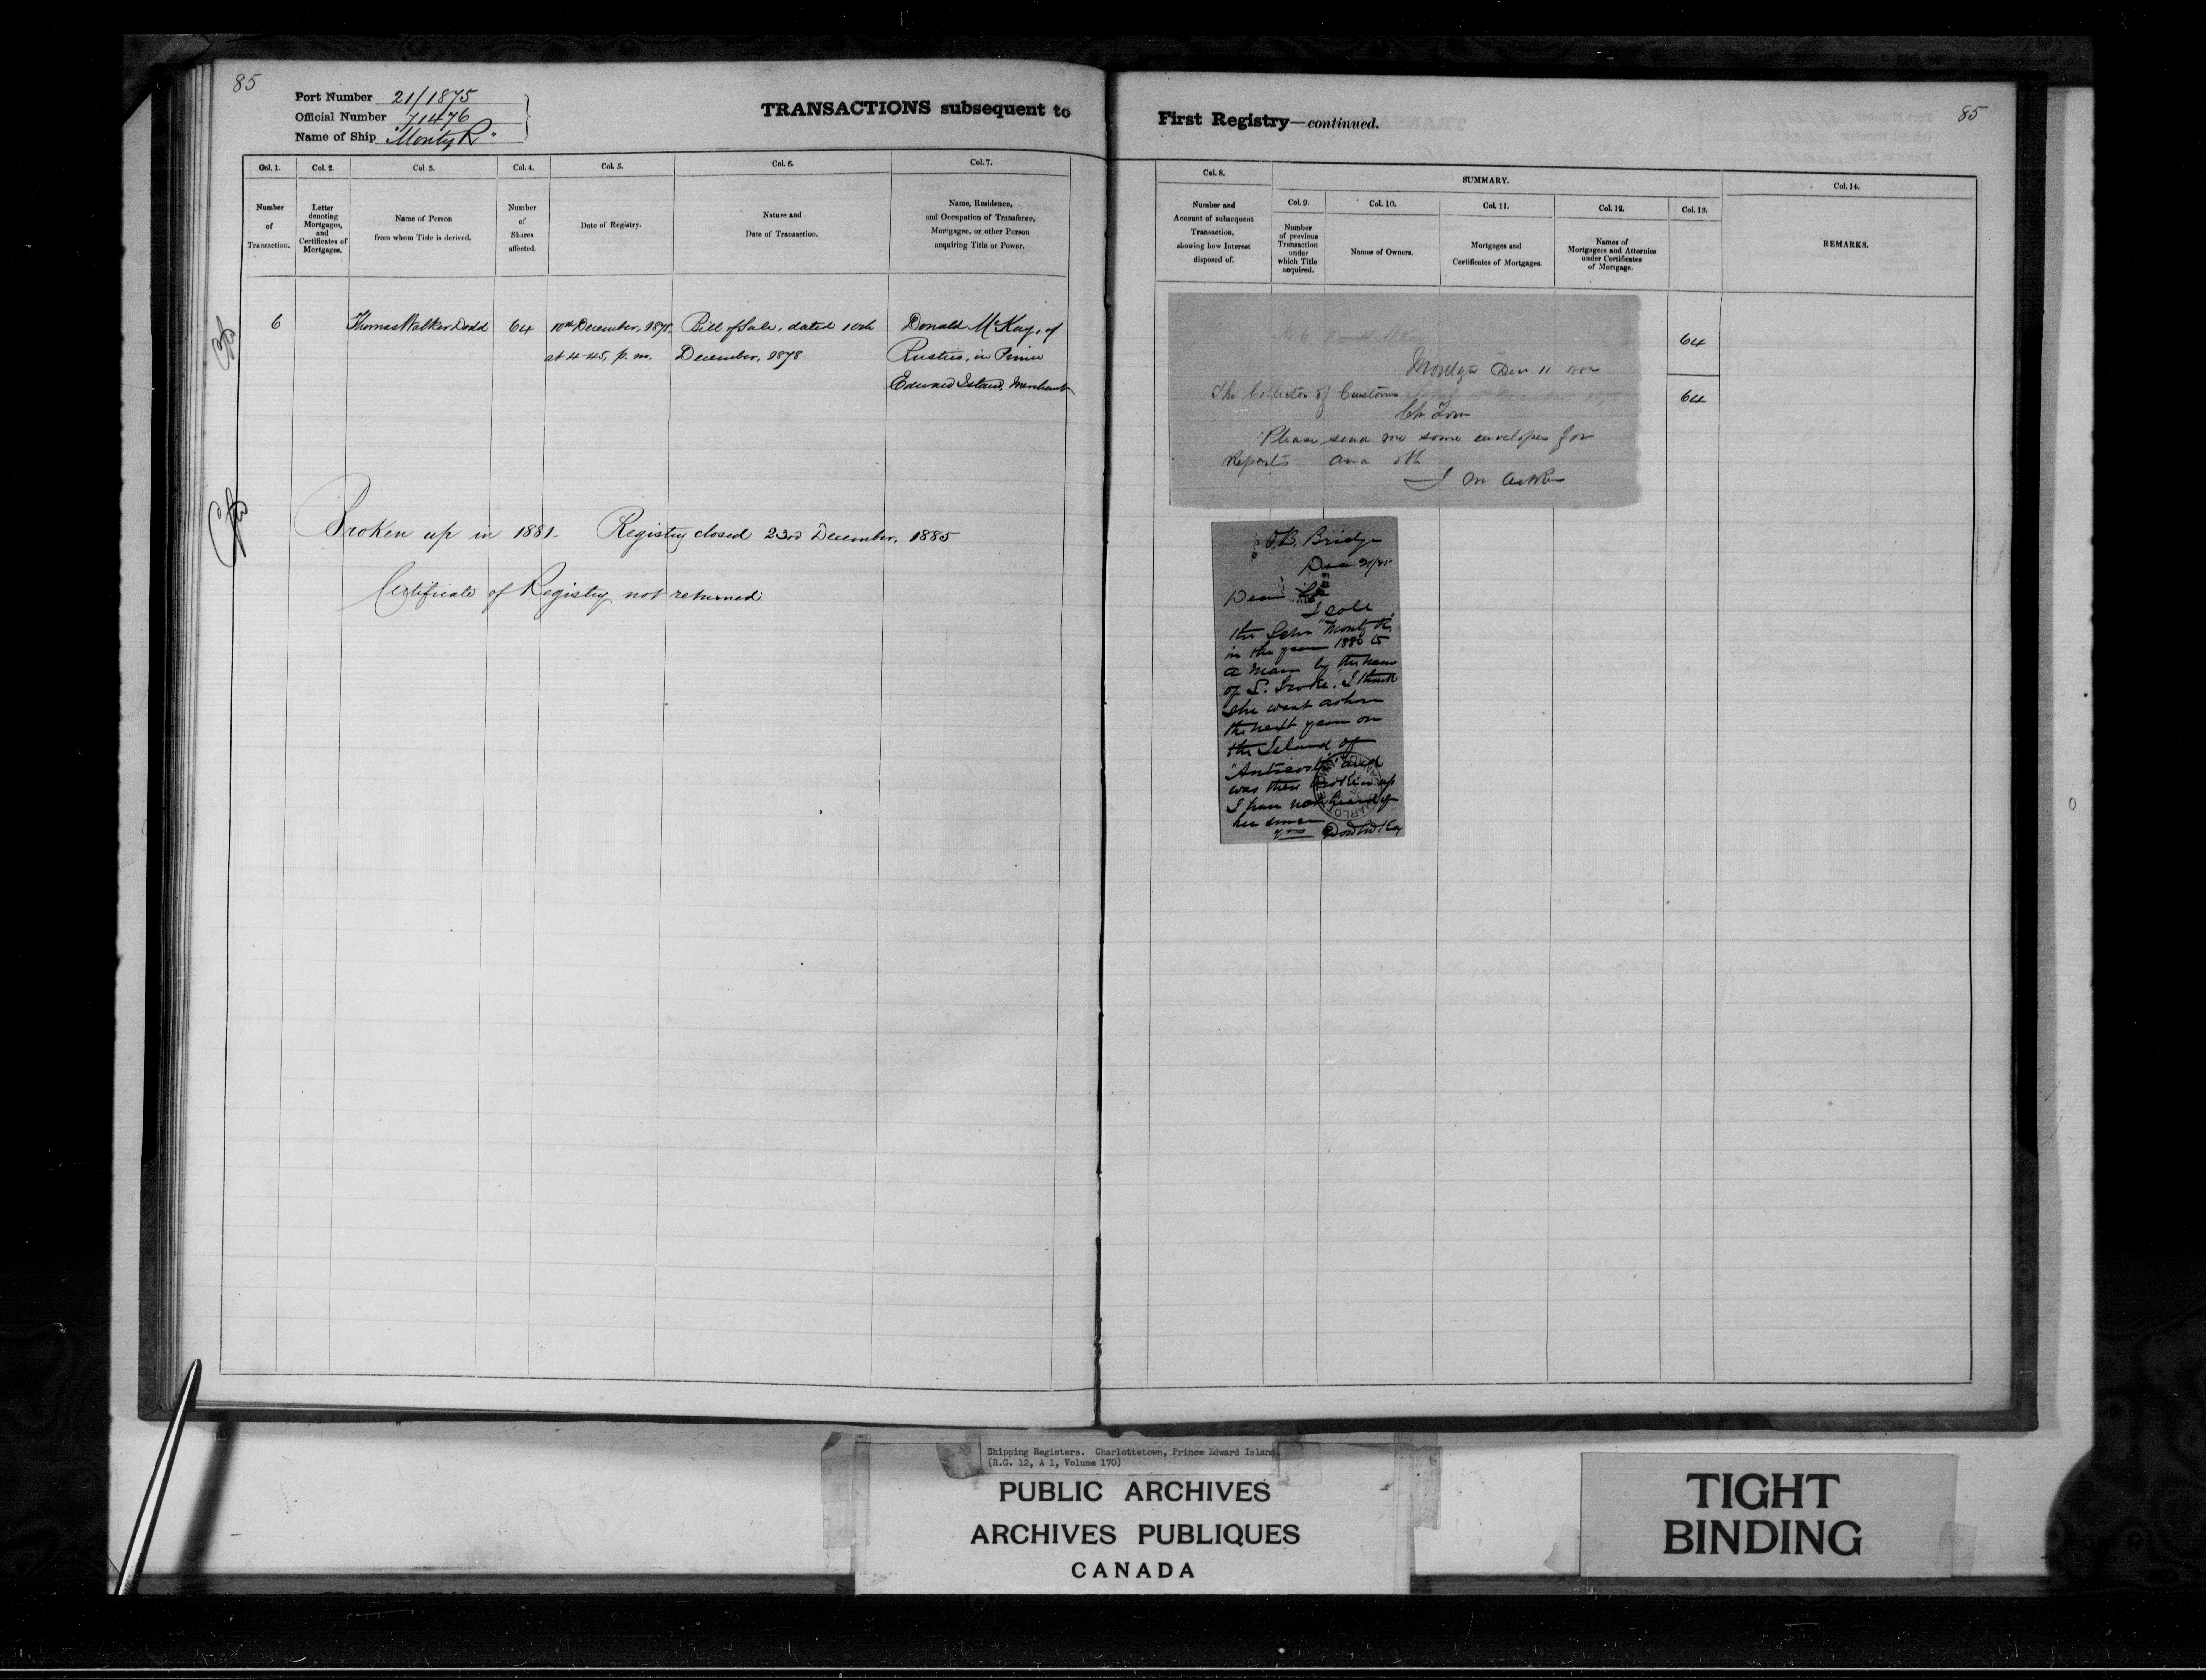 85
Port Number 21/1875
Official Number 71476
Name of Ship "Monty R"
TRANSACTIONS subsequent to
Col. 1. Col. 2. Col. 3. Col. 4. Col. 5. Col. 6. Col. 7.
Number of Transaction.
Letter denoting Mortgages, and Certificates of Mortgages.
Name of Person from whom Title is derived.
Number of Shares affected.
Date of Registry.
Nature and Date of Transaction.
Name, Residence, and Occupation of Transferee, Mortgagee, or other Person acquiring Title or Power.
6 Thomas Walker Dodd 64 10th December, 1878, Bill of Sale, dated 10th Donald McKay, of
at 4.45, p.m. December, 1878 Rustico, in Prince
Edward Island, Merchant
Broken up in 1881. Registry closed 23rd December, 1885
Certificate of Registry not returned.
First Registry—continued.
85
Col. 8. SUMMARY. Col. 14.
Col. 9. Col. 10. Col. 11. Col. 12. Col. 13.
Number and Account of subsequent Transaction, showing how Interest disposed of.
Number of previous Transaction under which Title acquired.
Names of Owners.
Mortgages and Certificates of Mortgages.
Names of Mortgagees and Attornies under Certificates of Mortgage.
REMARKS.
No. 6 Donald McKay
64
Dec 11
The Collector of Customs
64
Ch Town
Please send me some envelopes for
Reports and oth
Bridge
Dec 21/85
Dear Sir
I sold
the Schr "Monty R"
in the year 1880 to
a man by the name
of I think
she went ashore
the next year on
the Island of
"Anticosti" and
was then broken up
I have not heard of
her since
yrs Don McKay
Shipping Registers. Charlottetown, Prince Edward Island.
(R.G. 12, A 1, Volume 170)
PUBLIC ARCHIVES
ARCHIVES PUBLIQUES
CANADA
TIGHT
BINDING